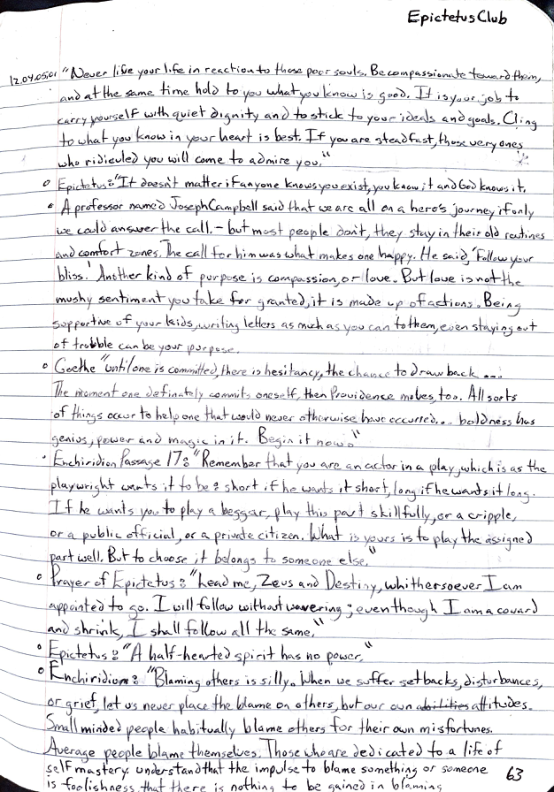 Epictetus Club
12.04.05.01 "Never live your life in reaction to those poor souls. Be compassionate toward them,
and at the same time hold to you what you know is good. It is your job to
carry yourself with quiet dignity and to stick to your ideals and goals. Cling
to what you know in your heart is best. If you are steadfast, those very ones
who ridiculed you will come to admire you."
Epictetus: "It doesn't matter if anyone knows you exist, you know it and God knows it.
A professor named Joseph Campbell said that we are all on a hero's journey if only
we could answer the call, - but most people don't, they stay in their old routines
and comfort zones. The call for him was what makes one happy. He said, 'Follow your
bliss.' Another kind of purpose is compassion, or love. But love is not the
mushy sentiment you take for granted, it is made up of actions. Being
supportive of your kids, writing letters as much as you can to them, even staying out
of trobble can be your purpose.
Goethe "until one is committed, there is hesitancy, the chance to draw back ....
The moment one definately commits oneself, then Providence moves, too. All sorts
of things occur to help one that would never otherwise have occurred... boldness has
genius, power and magic in it. Begin it now."
Enchiridion Passage 17: "Remember that you are an actor in a play, which is as the
playwright wants it to be: short if he wants it short, long if he wants it long.
If he wants you to play a beggar, play this part skillfully, or a cripple,
or a public official, or a private citizen. What is yours is to play the assigned
part well. But to choose it belongs to someone else."
Prayer of Epictetus: "Lead me, Zeus and Destiny, whithersoever I am
appointed to go. I will follow without wavering; even though I am a coward
and shrink, I shall follow all the same."
Epictetus: "A half-hearted spirit has no power."
Enchiridion: "Blaming others is silly. When we suffer setbacks, disturbances,
or grief, let us never place the blame on others, but our own abilities attitudes.
Small minded people habitually blame others for their own misfortunes.
Average people blame themselves. Those who are dedicated to a life of
self mastery understand that the impulse to blame something or someone
is foolishness, that there is nothing to be gained in blaming
63